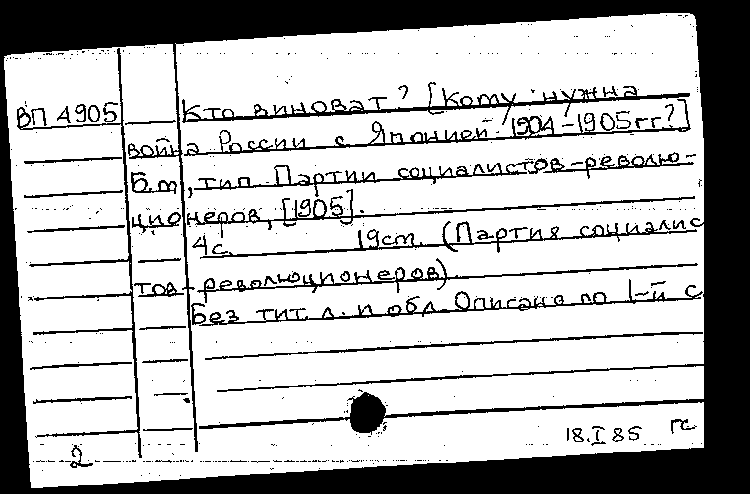 ВП 4905 Кто виноват? [Кому нужна
война России с Японией 1904-1905 гг.?]
Б.м., тип. Партии социалистов-револю-
ционеров, [1905].
4с. 19см. (Партия социалис
тов-революционеров).
Без тит. л. и обл. Описано по 1-й с
18.I 85 ГС
2